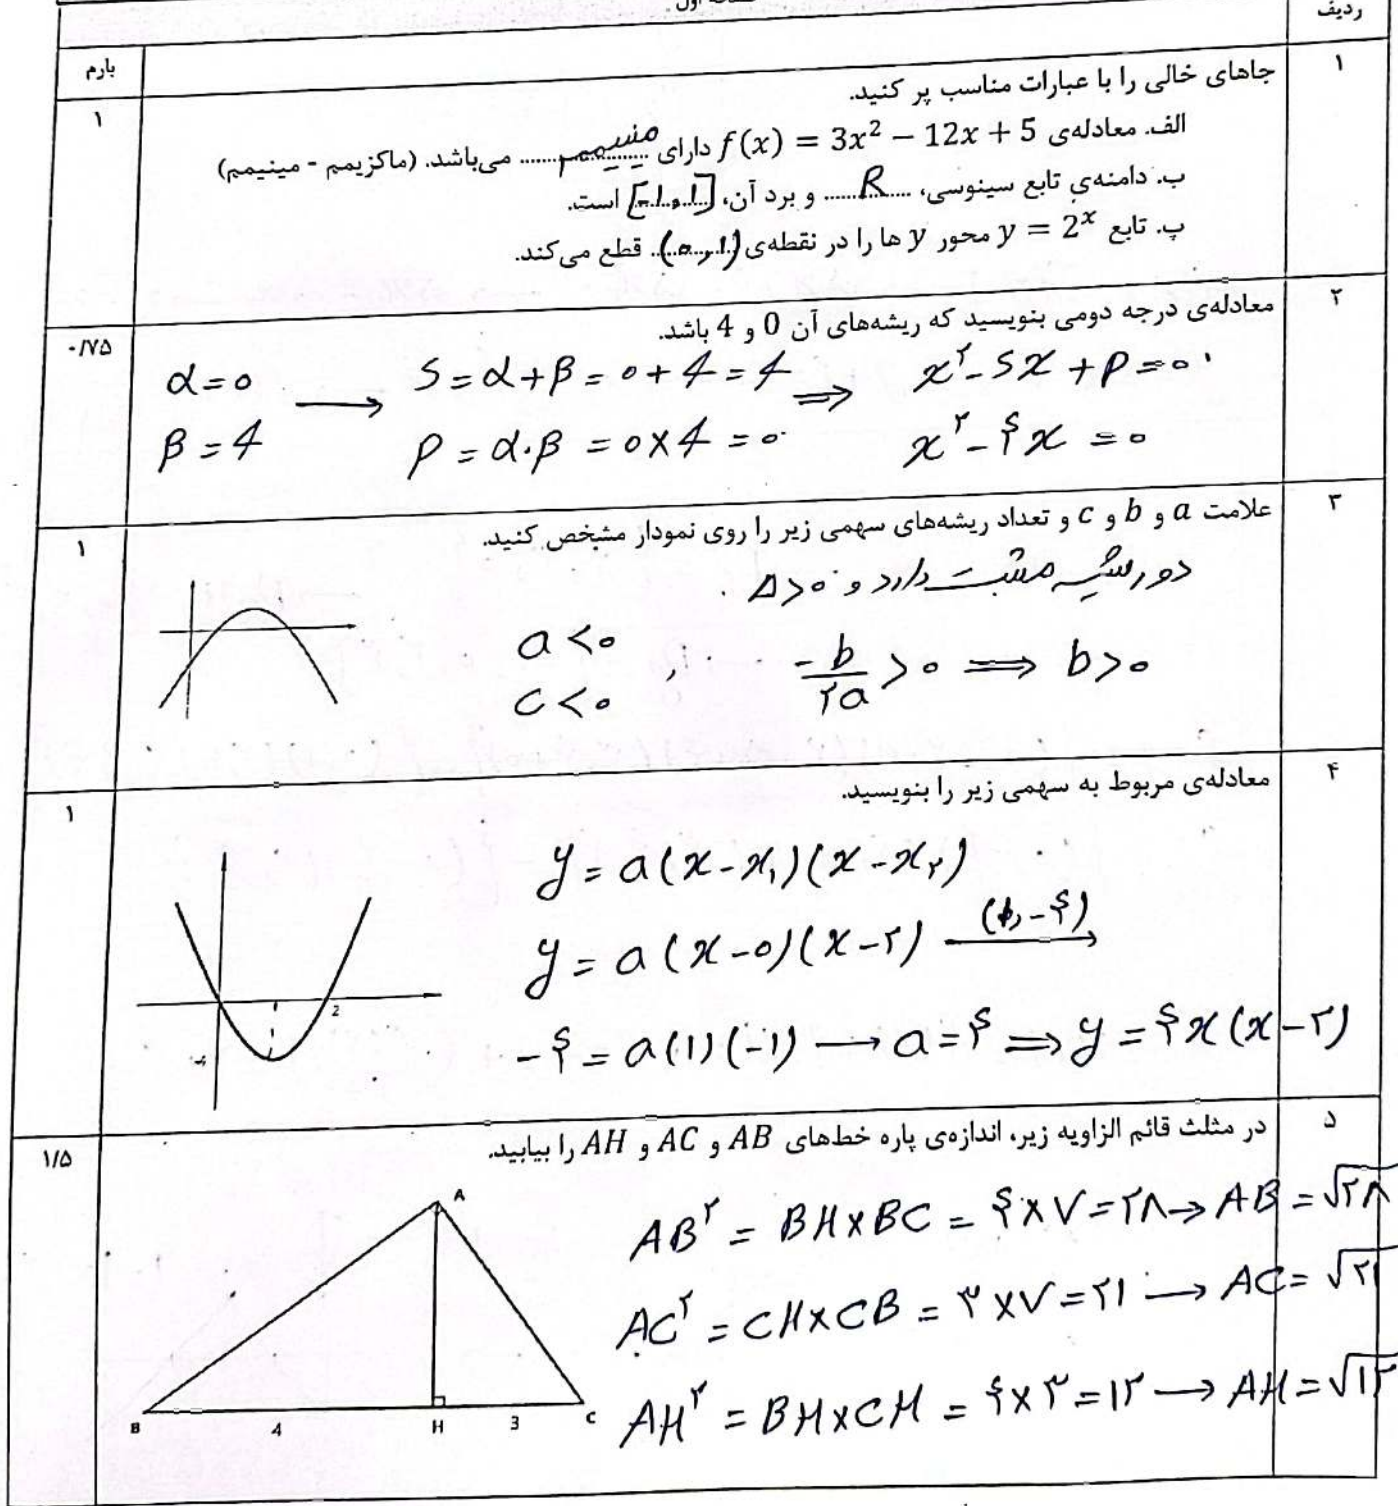 ردیف
بارم
۱
۱
جاهای خالی را با عبارات مناسب پر کنید.
الف. معادله‌ی f(x) = 3x² − 12x + 5 دارای ....مینیمم.... می‌باشد. (ماکزیمم - مینیمم)
ب. دامنه‌ی تابع سینوسی، ....R.... و برد آن، [-1,1] است.
پ. تابع y = 2ˣ محور y ها را در نقطه‌ی (0,1) قطع می‌کند.
۲
۰/۷۵
معادله‌ی درجه دومی بنویسید که ریشه‌های آن 0 و 4 باشد.
α=0 → S=α+β=0+4=4 ⇒ x²-Sx+P=0
β=4 P=α·β=0×4=0 x²-۴x=0
۳
۱
علامت a و b و c و تعداد ریشه‌های سهمی زیر را روی نمودار مشخص کنید.
دو ریشه مثبت دارد و Δ>0
a<0 ; -b/۲a >0 ⇒ b>0
c<0
۴
۱
معادله‌ی مربوط به سهمی زیر را بنویسید.
y=a(x-x₁)(x-x₂)
y=a(x-0)(x-۲) (1,-۴) →
2
-۴=a(1)(-1) → a=۴ ⇒ y=۴x(x-۲)
-4
۵
۱/۵
در مثلث قائم الزاویه زیر، اندازه‌ی پاره خط‌های AB و AC و AH را بیابید.
A
AB²=BH×BC=۴×۷=۲۸→AB=√۲۸
AC²=CH×CB=۳×۷=۲۱→AC=√۲۱
AH²=BH×CH=۴×۳=۱۲→AH=√۱۲
B 4 H 3 C